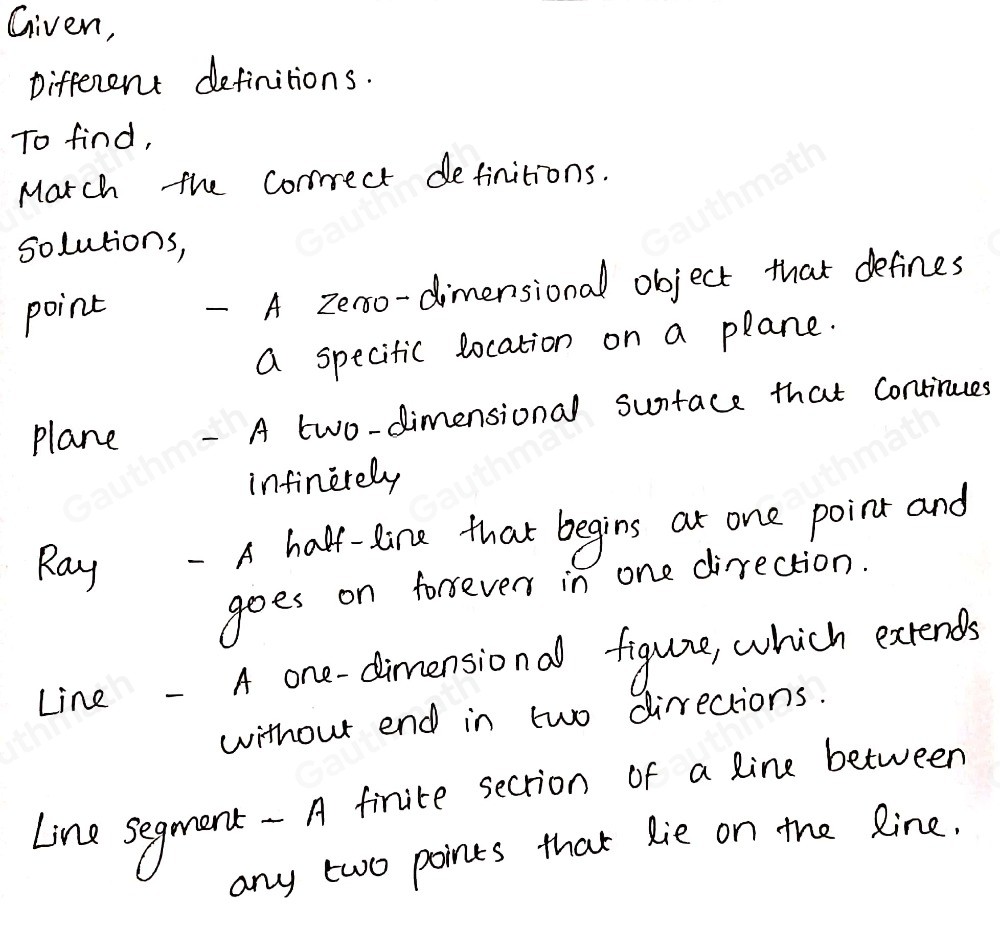 Given,
Different definitions.
To find,
Match the correct definitions.
Solutions,
point - A zero-dimensional object that defines
a specific location on a plane.
Plane - A two-dimensional surface that continues
infinitely
Ray - A half-line that begins at one point and
goes on forever in one direction.
Line - A one-dimensional figure, which extends
without end in two directions.
Line segment - A finite section of a line between
any two points that lie on the line.
Gauthmath
Gauthmath
Gauthmath
Gauthmath
Gauthmath
Gauthmath
Gauthmath
Gauthmath
Gauthmath